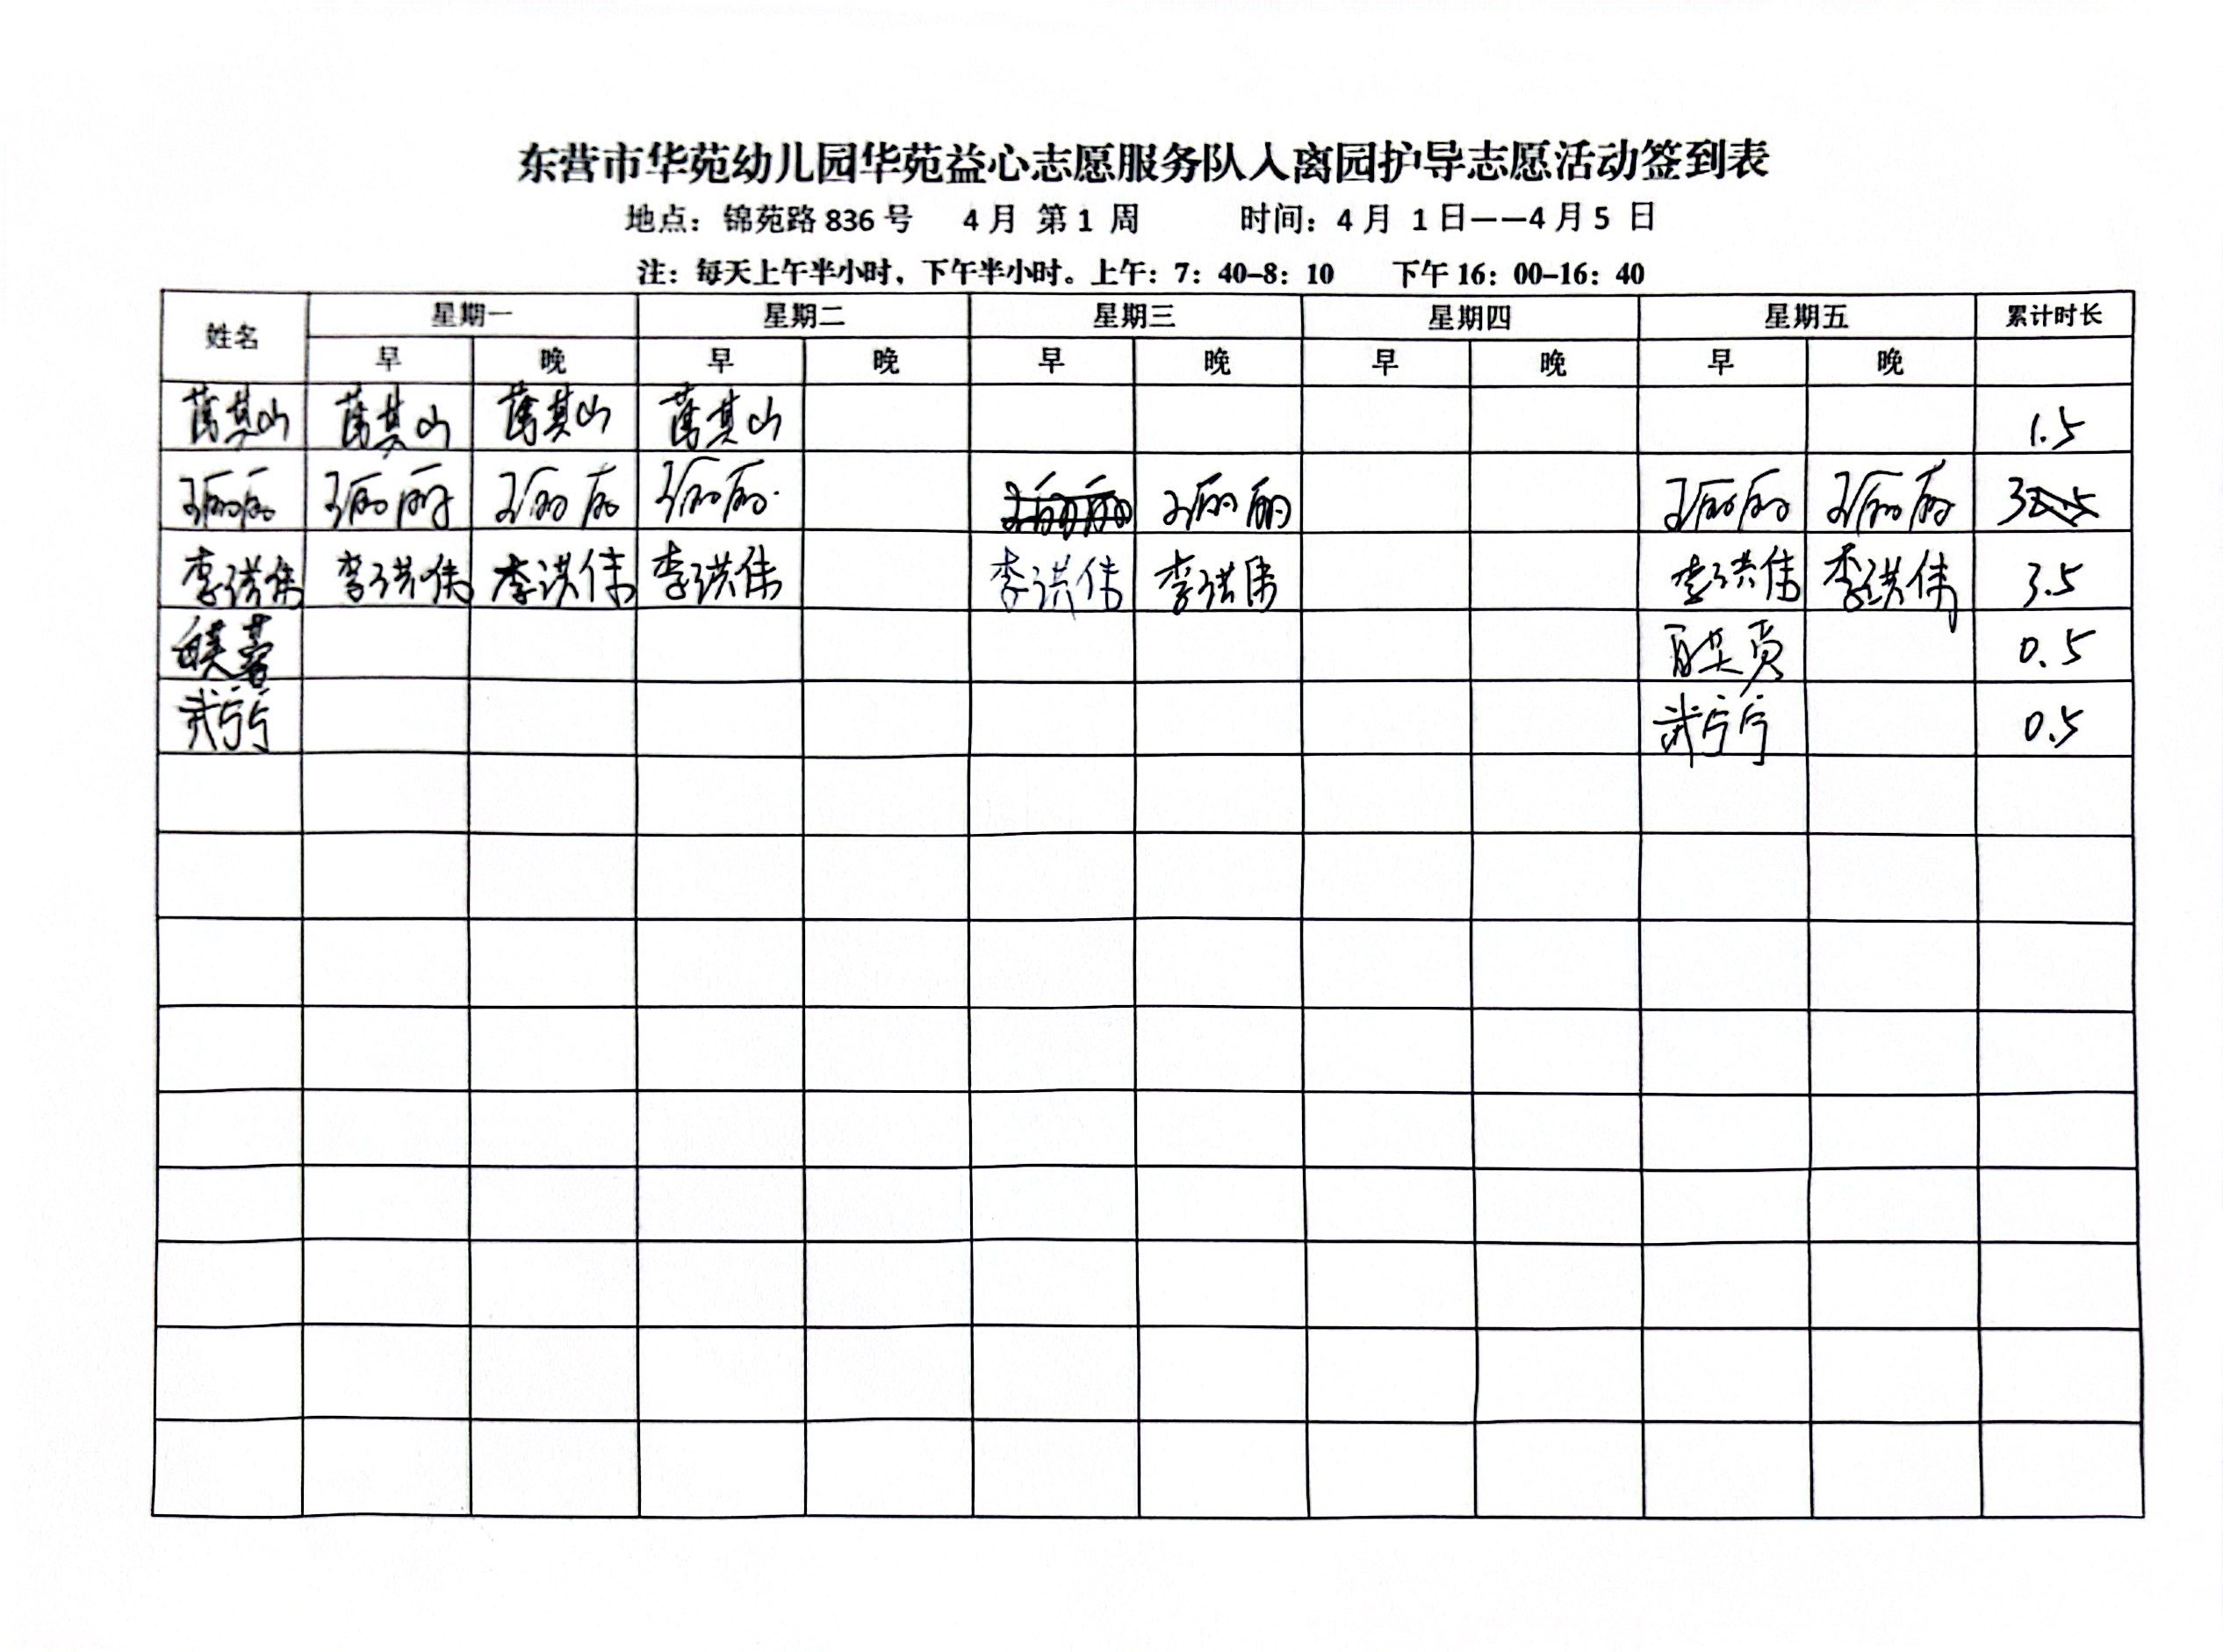 东营市华苑幼儿园华苑益心志愿服务队入离园护导志愿活动签到表
地点：锦苑路 836 号 4 月 第 1 周 时间：4 月 1 日——4 月 5 日
注：每天上午半小时，下午半小时。上午：7：40–8：10 下午 16：00–16：40
姓名 星期一 星期二 星期三 星期四 星期五 累计时长
早 晚 早 晚 早 晚 早 晚 早 晚
其山 其山 其山 其山 1.5
王丽丽 王丽丽 王丽丽 王丽丽 王丽丽 王丽丽 王丽丽 3
李洪伟 李洪伟 李洪伟 李洪伟 李洪伟 李洪伟 李洪伟 李洪伟 3.5
0.5
武宁宁 武宁宁 0.5